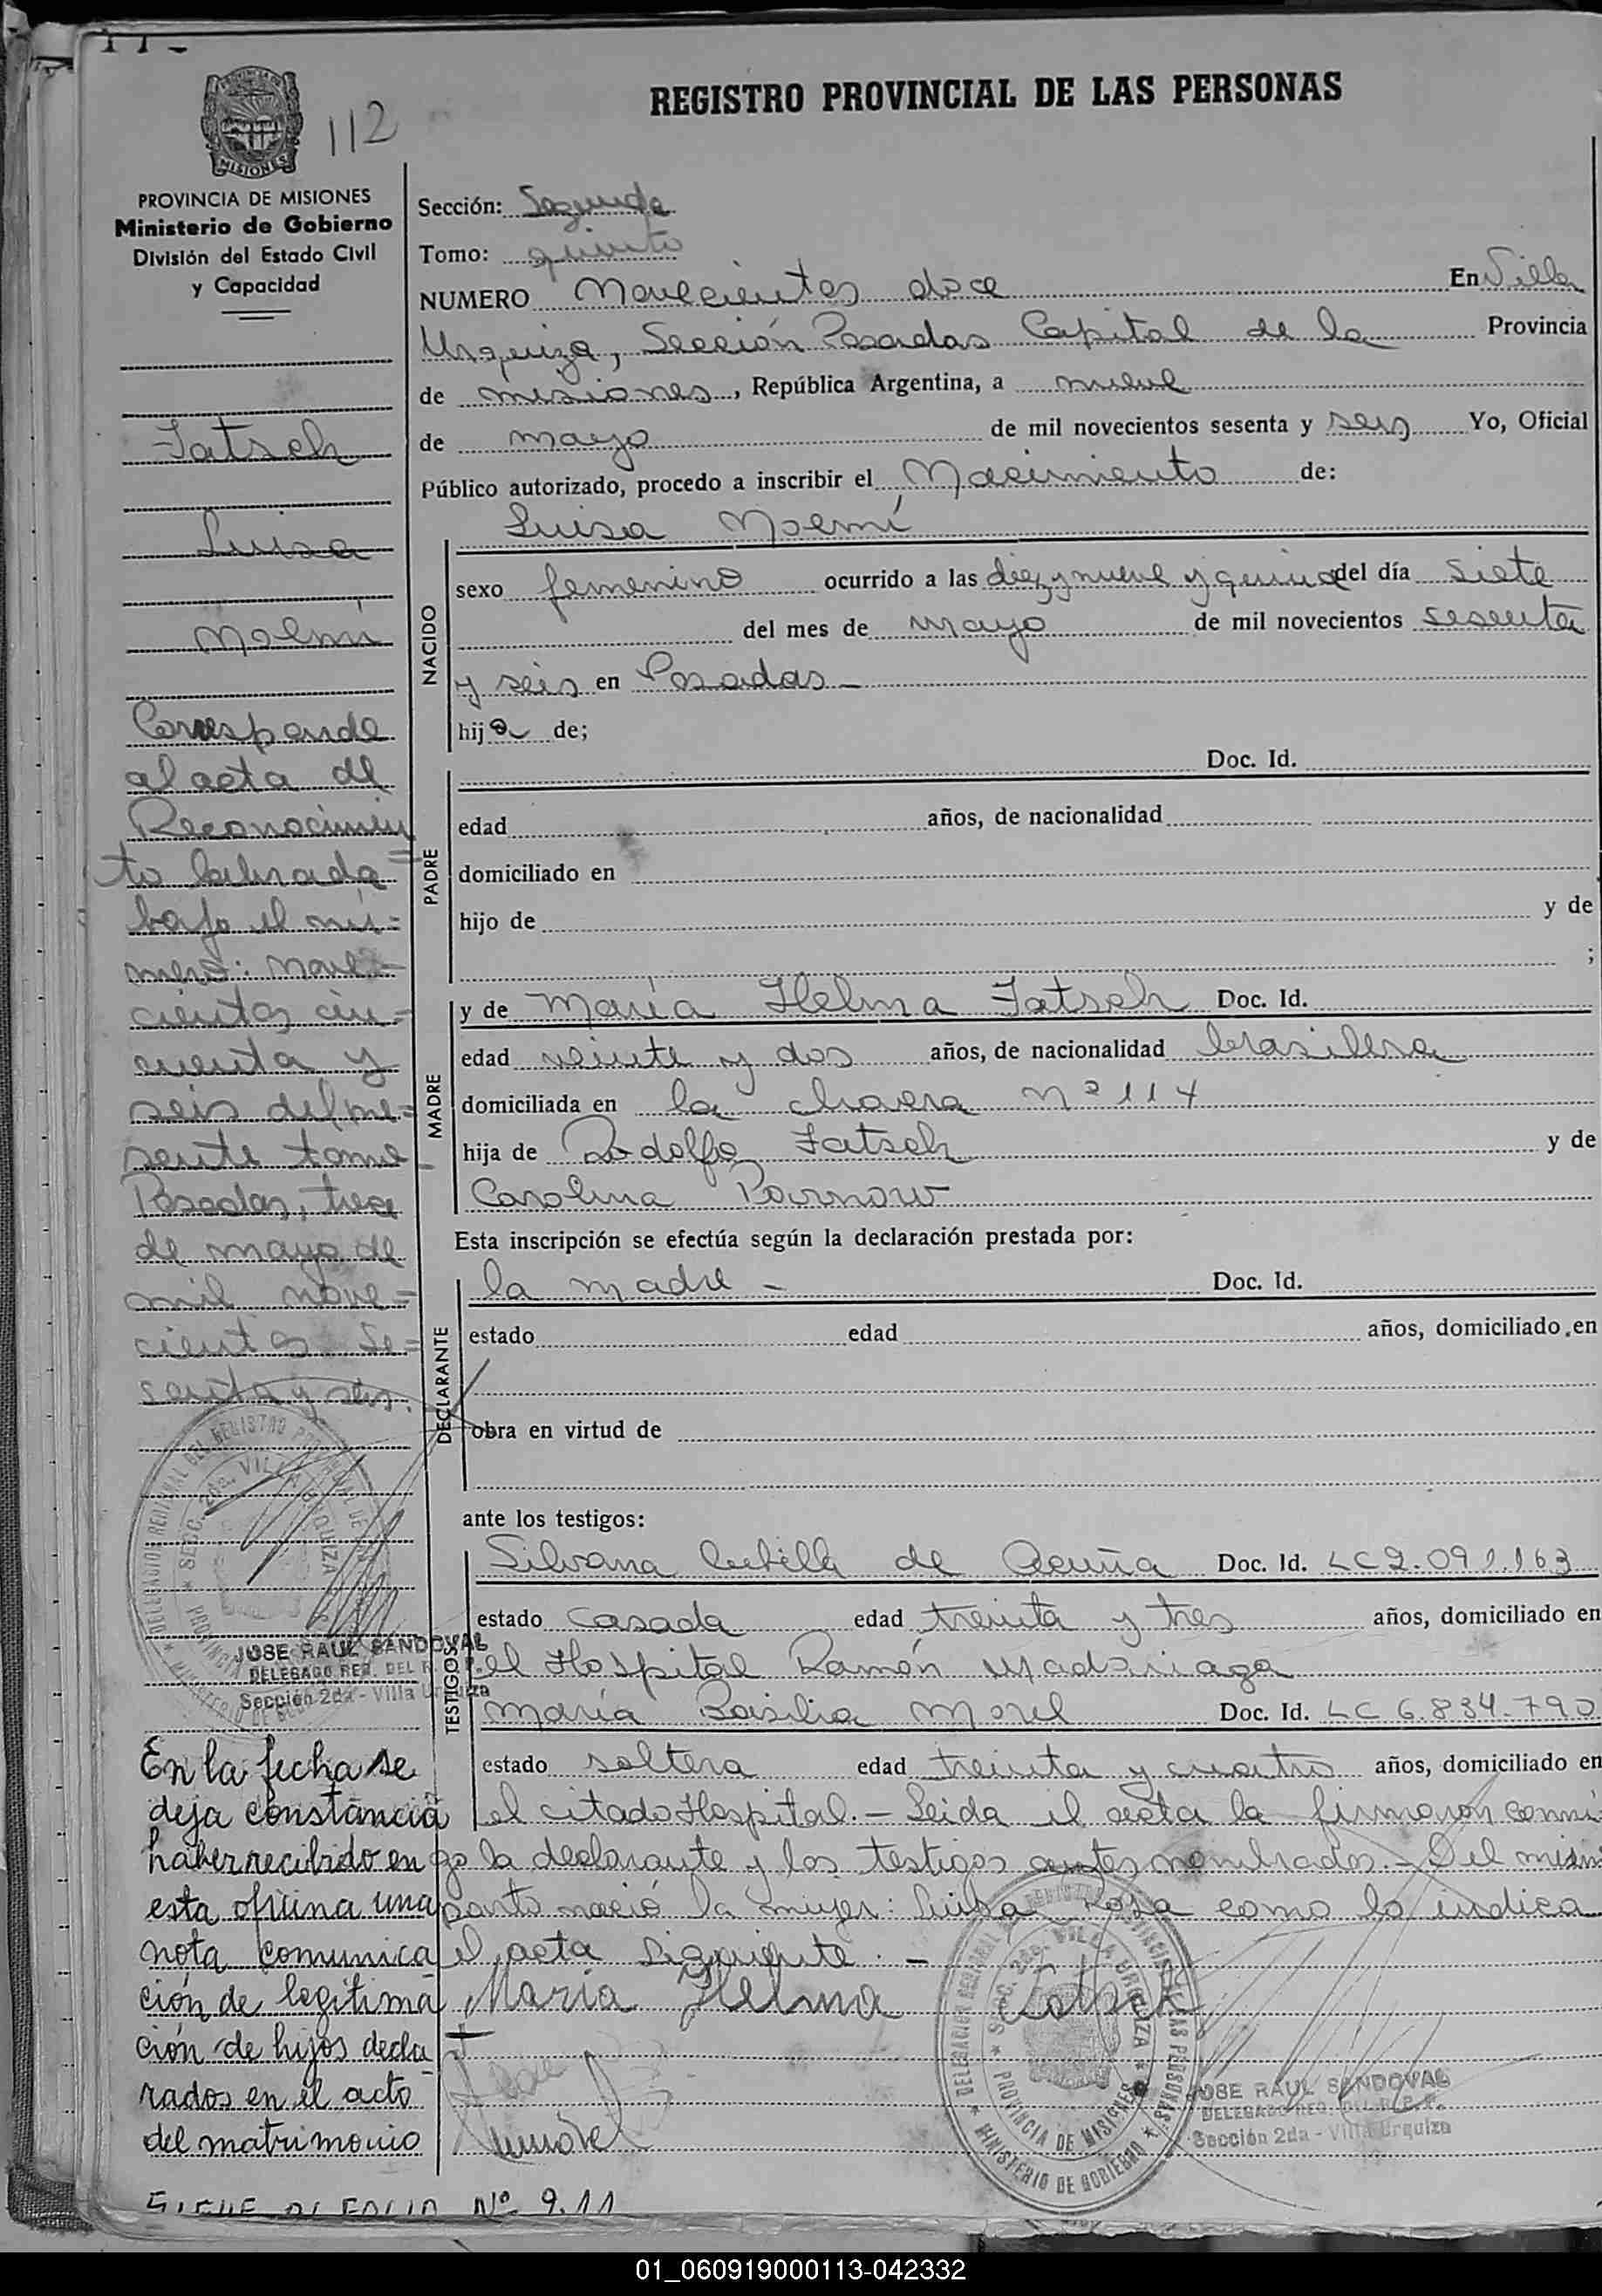 REGISTRO PROVINCIAL DE LAS PERSONAS
MISIONES
112
PROVINCIA DE MISIONES
Ministerio de Gobierno
División del Estado Civil
y Capacidad
Fatsch
Luisa
Noemí
Corresponde
al acta de
Reconocimien
to labrada
bajo el nú=
mero: nove=
cientos cin=
cuenta y
seis del pre=
sente tomo
Posadas, trece
de mayo de
mil nove=
cientos se=
senta y seis.
JOSE RAUL SANDOVAL
DELEGADO REG. DEL R. P. P.
Sección 2da - Villa Urquiza
En la fecha se
deja constancia
haber recibido en
esta oficina una
nota comunica
ción de legitima
ción de hijos decla
rados en el acto
del matrimonio
SIGUE AL FOLIO Nº 9.11
Sección: Segunda
Tomo: quinto
NUMERO Novecientos doce En Villa
Urquiza, Sección Posadas Capital de la Provincia
de misiones, República Argentina, a nueve
de mayo de mil novecientos sesenta y seis Yo, Oficial
Público autorizado, procedo a inscribir el Nacimiento de:
Luisa Noemí
NACIDO
sexo femenino ocurrido a las diez y nueve y quince del día siete
del mes de mayo de mil novecientos sesenta
y seis en Posadas -
hija de;
PADRE
Doc. Id.
edad años, de nacionalidad
domiciliado en
hijo de y de
;
MADRE
y de María Helma Fatsch Doc. Id.
edad veinte y dos años, de nacionalidad brasilera
domiciliada en la chacra Nº 114
hija de Rodolfo Fatsch y de
Carolina Parnow
Esta inscripción se efectúa según la declaración prestada por:
DECLARANTE
la madre - Doc. Id.
estado edad años, domiciliado en
obra en virtud de
ante los testigos:
TESTIGOS
Silvana de Acuña Doc. Id. LC 2.091.163
estado casada edad treinta y tres años, domiciliado en
el Hospital Ramón Madariaga
María Basilia Morel Doc. Id. LC 6.834.790
estado soltera edad treinta y cuatro años, domiciliado en
el citado Hospital. - Leida el acta la firmaron conmi
go la declarante y los testigos antes nombrados. - Del mismo
parto nació la mujer: Luisa Rosa como lo indica
el acta siguiente. -
María Helma Fatsch
DELEGACION REGIONAL DEL REGISTRO PROVINCIAL DE LAS PERSONAS
SECC. 2da. VILLA URQUIZA
PROVINCIA DE MISIONES
MINISTERIO DE GOBIERNO
JOSE RAUL SANDOVAL
DELEGADO REG. DEL R. P. P.
Sección 2da - Villa Urquiza
01_060919000113-042332